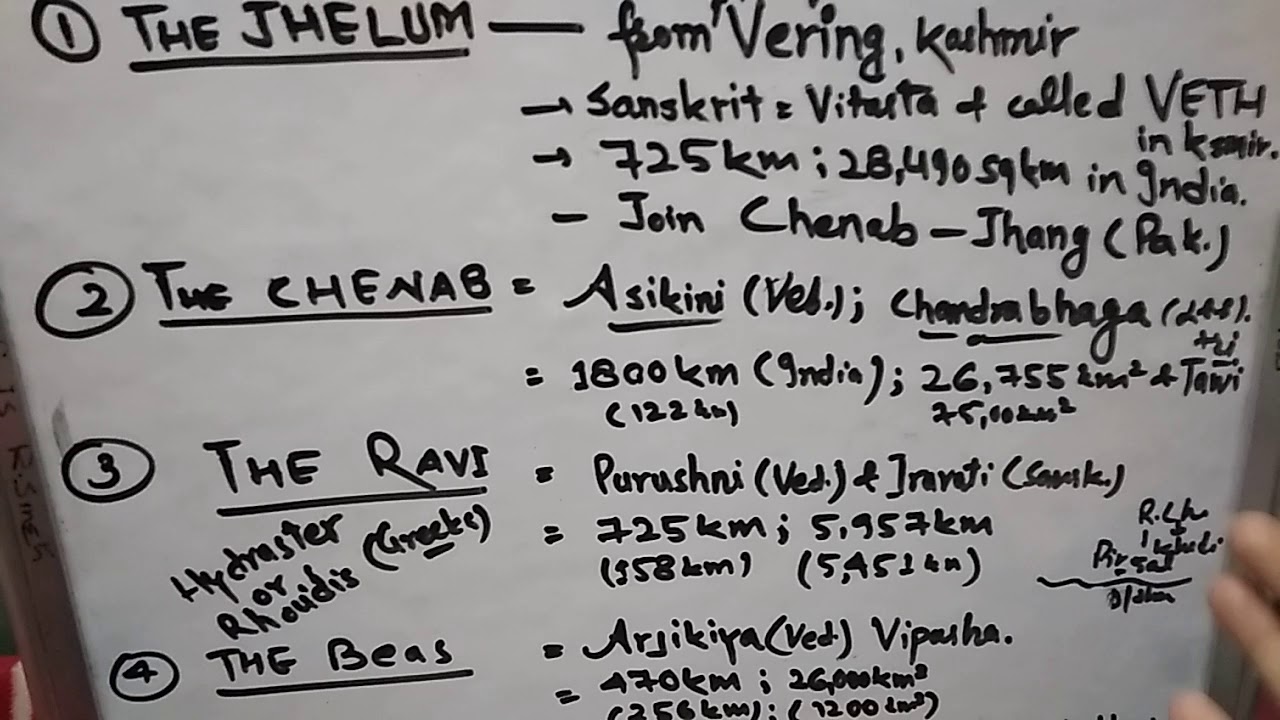 ① THE JHELUM — from Vering, Kashmir
→ Sanskrit = Vitasta & called VETH
in ksmir.
→ 725km ; 28,490 sqkm in India.
– Join Chenab – Jhang (Pak.)
② THE CHENAB = Asikini (Ved.) ; Chandrabhaga
= 1800 km (India) ; 26,755 km² & Tawi
(122 km) 75,00 km²
③ THE RAVI = Purushni (Ved.) & Iravati (Sansk.)
Hydraster
or
Rhouidis (Greeks)
= 725 km ; 5,957 km
(158 km) (5,451 km)
④ THE Beas = Arjikiya (Ved.) Vipasha.
= 470km ; 26,000km²
(256 km) ; (1200 km²)